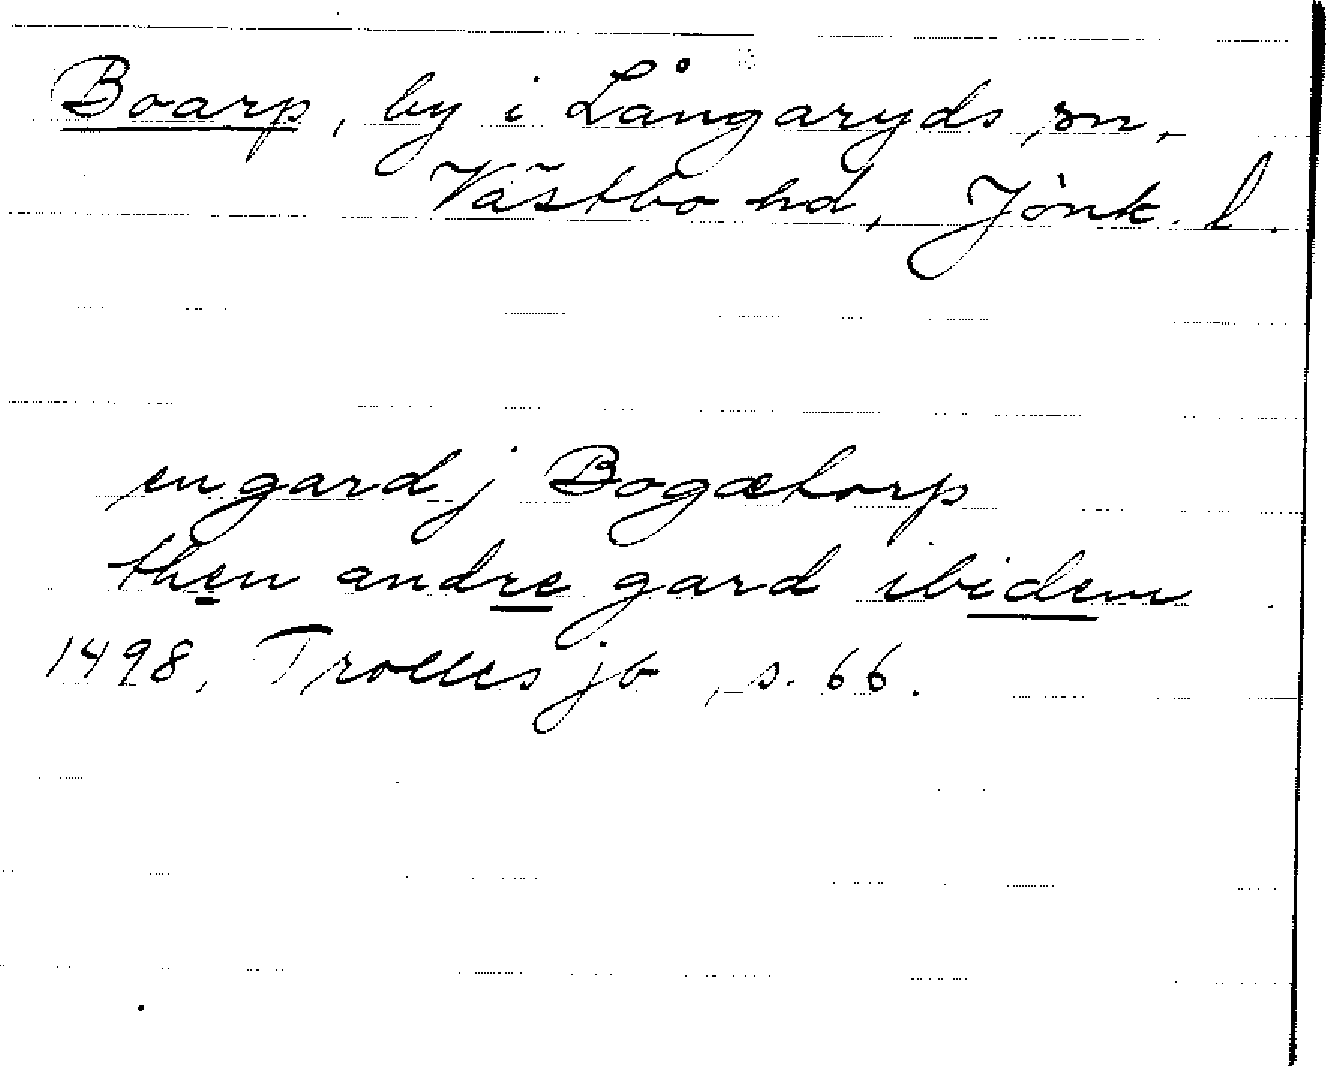 Boarp, by i Långaryds sn,
Västbo hd, Jönk. l.
en gard j Bogætorp
then andre gard ibidem
1498, Trolles jb, s. 66.